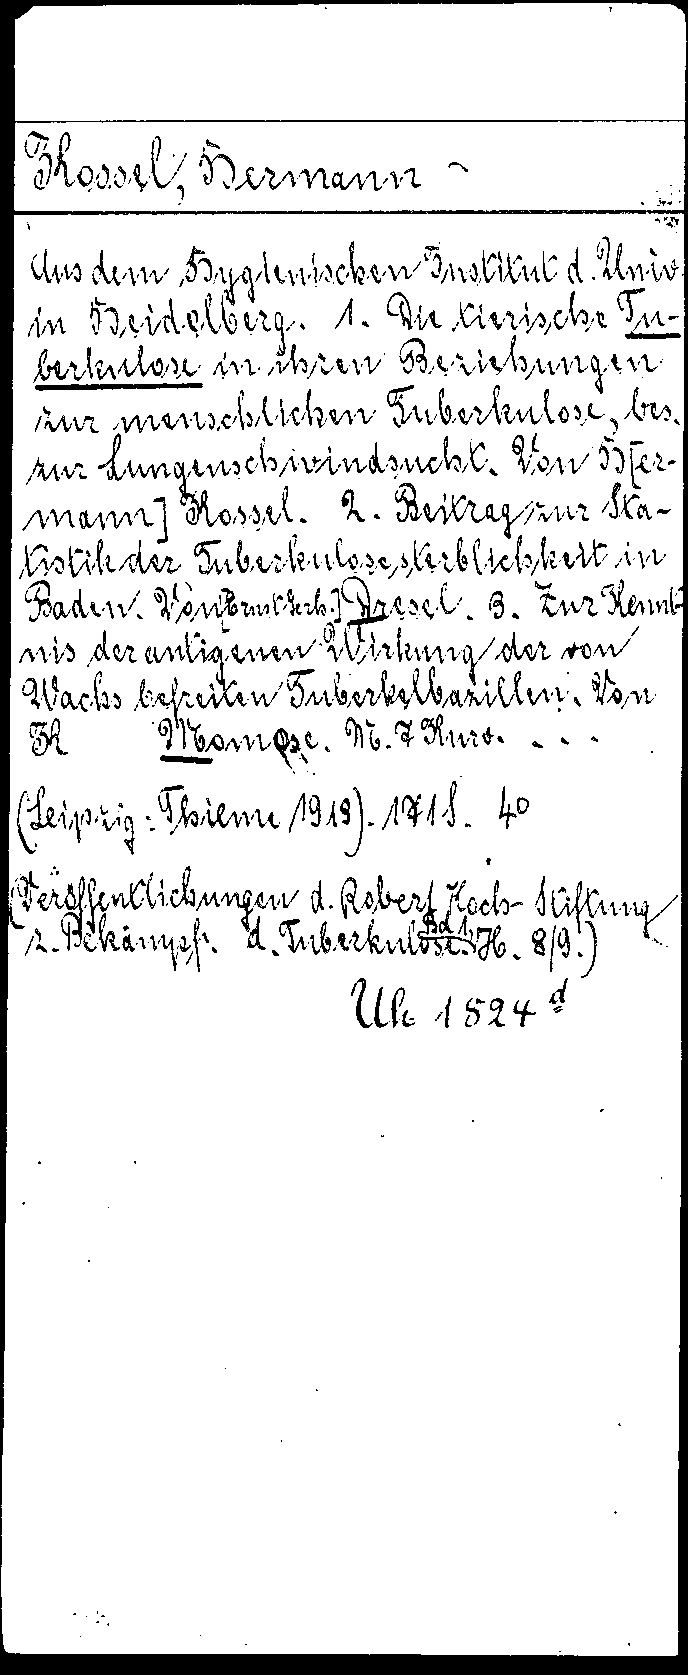 Kossel, Hermann -
Aus dem Hygienischen Institut d. Univ
in Heidelberg. 1. Die tierische Tu-
berkulose in ihren Beziehungen
zur menschlichen Tuberkulose, bes.
zur Lungenschwindsucht. Von H[er-
mann] Kossel. 2. Beitrag zur Sta-
tistik der Tuberkulosesterblichkeit in
Baden. Von [Ernst Gerh.] Dresel. 3. Zur Kennt-
nis der antigenen Wirkung der von
Wachs befreiten Tuberkelbazillen. Von
K Momose. M. 7 Kurv. . . .
(Leipzig: Thieme 1919). 171 S. 4°
(Veröffentlichungen d. Robert Koch-Stiftung
z. Bekämpf. d. Tuberkulose. Bd 1, H. 8/9.)
Uk 1824 d